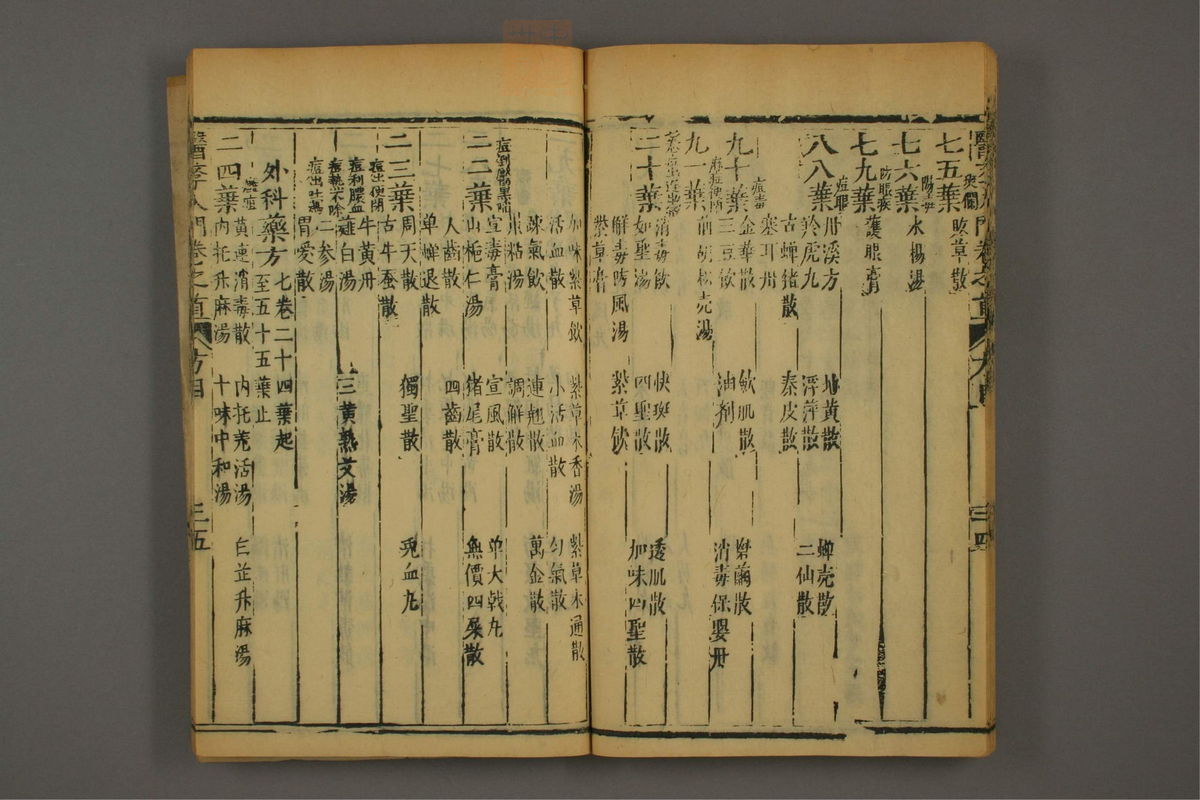 七五葉 爽闌 敗草散
七六葉 陽 水楊湯
七九葉 防眼疾 護眼膏
八八葉 痘耶 丹溪方 地黃散 蟬壳散
羚虎丸 浮萍散 二仙散
古蟬猪散 秦皮散
痘毒 塞耳丹
九十葉 金華散 飲肌散 礬繭散
麻痘便閉 三豆飲 油剤 消毒保嬰丹
九一葉 前胡枳壳湯
消毒飲 快斑散 透肌散
二十葉 如聖湯 四聖散 加味四聖散
解毒防風湯 紫草飲
紫草膏
三四
加味紫草飲 紫草木香湯 紫草木通散
活血散 小活血散 匀氣散
疎氣飲 連翹散 萬金散
鼠粘湯 調解散
痘倒黶黑陷 宣毒膏 宣風散 單大戟丸
二二葉 山梔仁湯 猪尾膏 無價四屎散
人齒散 四齒散
单蟬退散
二三葉 周天散 獨聖散 兎血丸
痘出便閉 古牛蚕散
痘利膿血 牛黃丹
痘熱不除 薤白湯 三黃熟艾湯
痘出吐瀉 二參湯
胃愛散
外科藥方 七卷二十四葉起
至五十五葉止
癰疽 黃連消毒散 内托羌活湯 白芷升麻湯
二四葉 内托升麻湯 十味中和湯
醫學入門卷之首 方四 三五